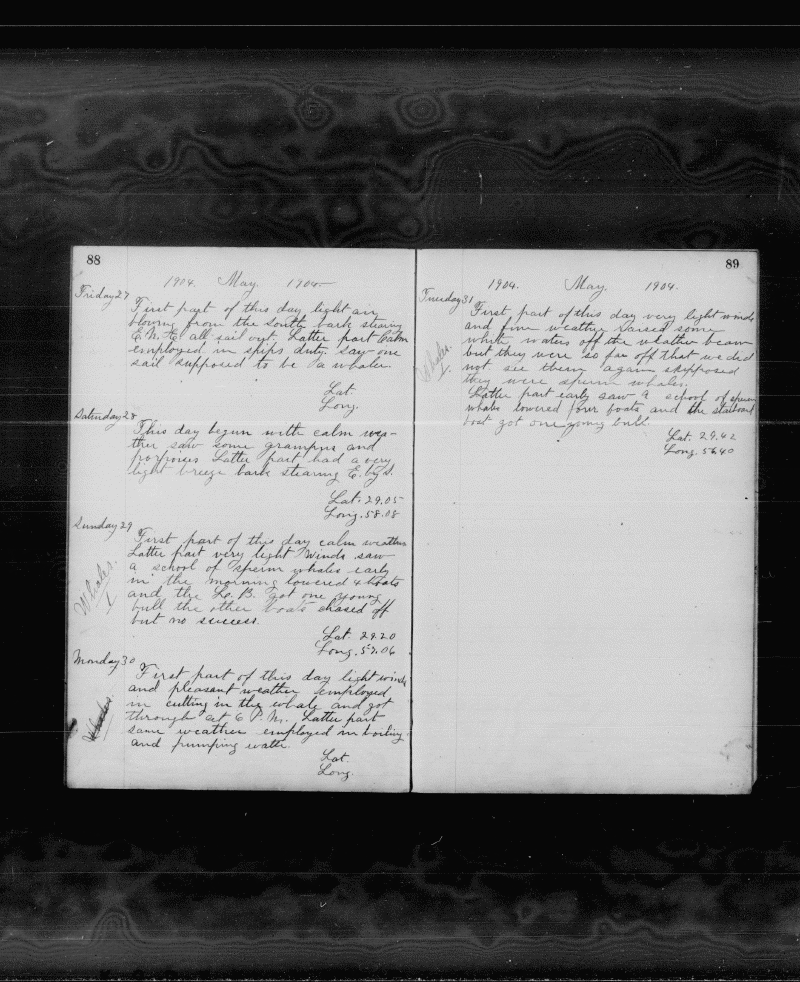 88
1904. May. 1904
Friday 27
First part of this day light air
blowing from the south bark stearing
E.N.E. all sail out. Latter part Calm
employed in ships duty. saw one
sail supposed to be a whaler.
Lat.
Long.
Saturday 28
This day begun with calm wea-
ther saw some grampus and
porpoises Latter part had a very
light breeze bark stearing E. by S.
Lat. 29.05
Long. 58.08
Sunday 29
First part of this day calm weather
Latter part very light winds saw
a school of sperm whales early
in the morning lowered 4 boats
and the L. B. got one young
bull the other boats chased off
but no success.
Whales.
1
Lat. 29.20
Long. 57.06
Monday 30
First part of this day light winds
and pleasant weather employed
in cutting in the whale and got
through at 6 P.M. Latter part
same weather employed in boiling
and pumping water.
Whales
Lat.
Long.
89
1904. May. 1904.
Tuesday 31
First part of this day very light winds
and fine weather raised some
white waters off the weather beam
but they were so far off that we did
not see them again skipposed
they were sperm whales.
Latter part early saw a school of sperm
whales lowered four boats and the starboard
boat got one young bull.
Whales.
1
Lat. 29.42
Long. 56.40